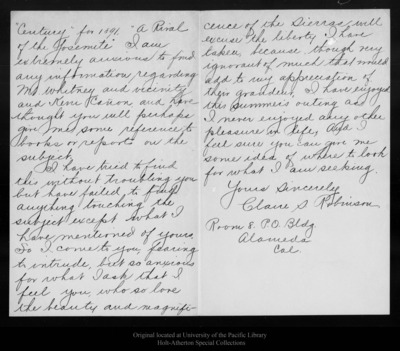 "Century" for 1891 "A Rival
of the Yosemite" I am
extremely anxious to find
any information regarding
Mt Whitney and vicinity
and Kern Cañon and have
thought you will perhaps
give me some reference to
books or reports on the
subject.
I have tried to find
this without troubling you
but have failed to find
anything touching the
subject except what I
have mentioned of yours
So I come to you, fearing
to intrude, but so anxious
for what I ask that I
feel you, who so love
the beauty and magnifi-
cence of the Sierras, will
excuse the liberty I have
taken, because though very
ignorant of much that would
add to my appreciation of
their grandeur, I have enjoyed
this summer's outing as
I never enjoyed any other
pleasure in life, and I
feel sure you can give me
some idea of where to look
for what I am seeking.
Yours Sincerely
Claire S Robinson
Room 8. P.O. Bldg
Alameda
Cal.
Original located at University of the Pacific Library
Holt-Atherton Special Collections